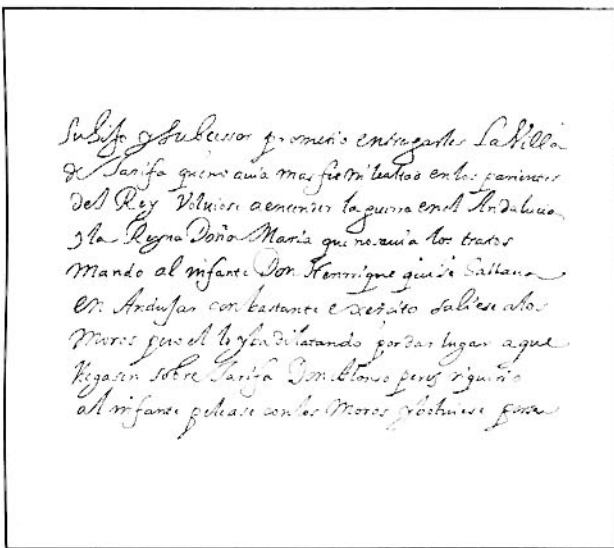 su hijo y subcessor prometio entregarles La Villa
de Tarifa que no auia mas fie ni lealtad en los parientes
del Rey Voluiose a encender la guerra en el Andalucia
y la Reyna Doña Maria que no suia los tratos
Mando al infante Don Henrrique que se hallaua
en Andujar con bastante exercito saliese a los
Moros pero el lo yba dilatando por dar lugar a que
llegasen sobre Tarifa Don Alonso peres riquirio
al infante pelease con los Moros y